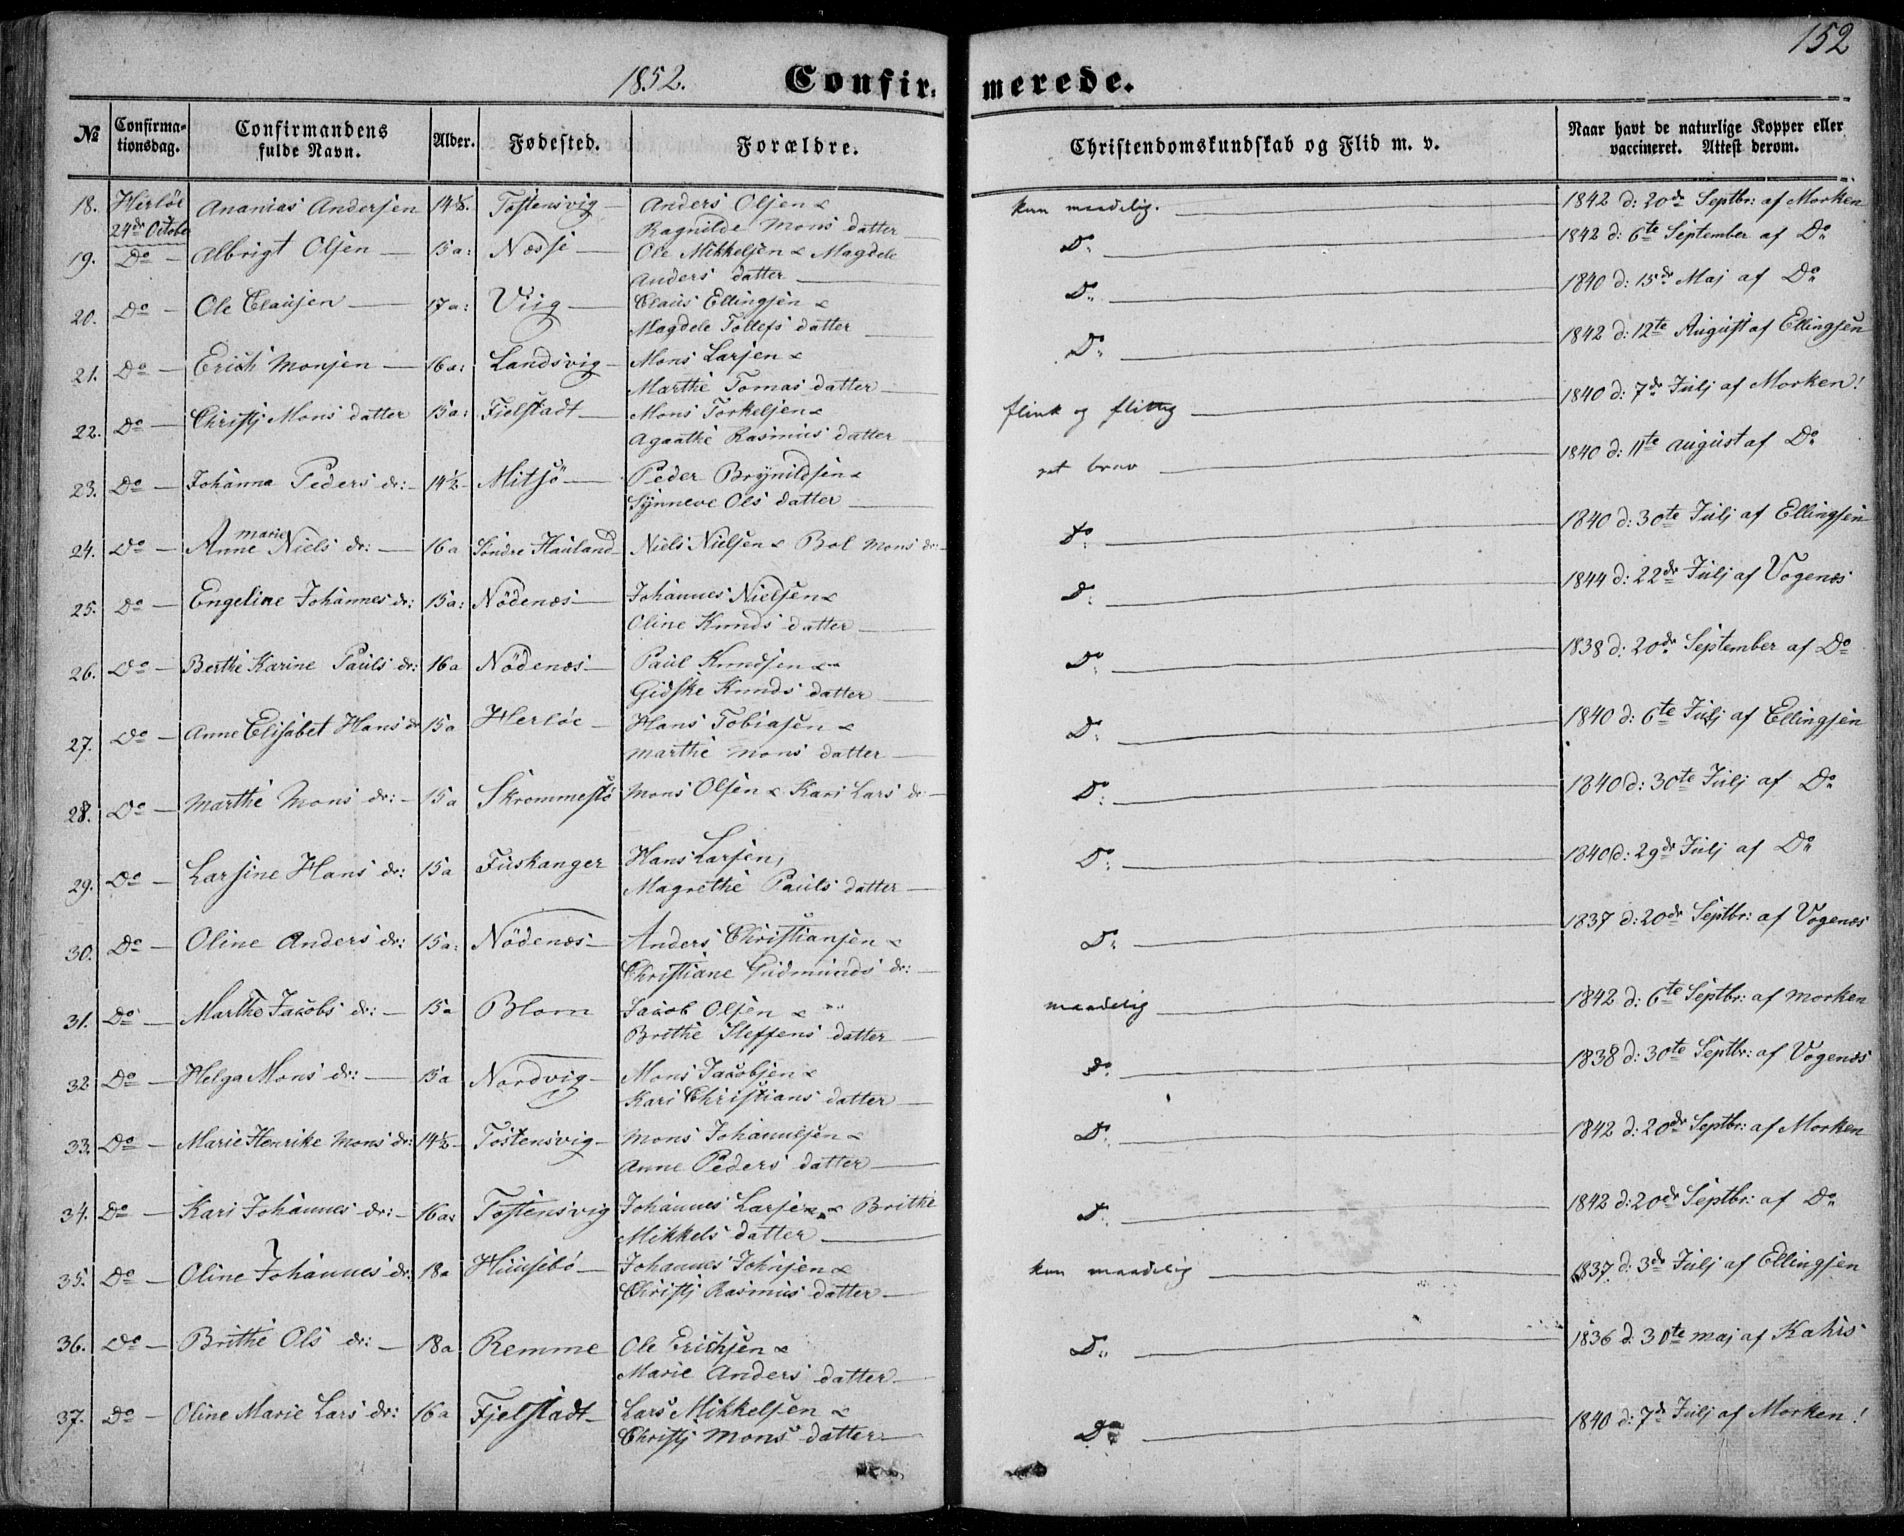 152
1852. Confirmerede.
№ Confirmationsdag. Confirmandens fulde Navn. Alder. Fødested. Forældre. Christendomskundskab og Flid m. v. Naar havt de naturlige Kopper eller vaccineret. Attest derom.
18. Herlöe 24de October Ananias Andersen 14½. Tostensvig Anders Olsen & kun maadelig. 1842 d: 20de Septbr: af Morken
Ragnilde Mons datter
19. Do Albrigt Olsen 15a: Næsse Ole Mikkelsen & Magdele Do: 1842 d: 6te September af Do
Anders datter
20. Do Ole Clausen 17a: Viig Claus Ellingsen & Do: 1840 d: 15de Maj af Do
Magdele Tollefs datter
21. Do Erich Monsen 16a: Landsvig Mons Larsen & Do: 1842 d: 12te August af Ellingsen
Marthe Tomas datter
22. Do Christj Mons datter 15a: Fjelstadt Mons Torkelsen & flink og flittig 1840 d: 7de Julj af Morken!
Agaathe Rasmus datter
23. Do Johanna Peders dr: 14½ Mitsjö Peder Brynildsen & ret brav 1840 d: 11te august af Do
Synneve Ols datter
24. Do Anne marie Niels dr: 16a Söndre Hauland Niels Nielsen & Bol Mons dr: do: 1840 d: 30te Julj af Ellingsen
25. Do Engeline Johannes dr: 15a: Nödenæs Johannes Nielsen & D: 1844 d: 22de Julj af Vogenæs
Oline Knuds datter
26. Do Berthe Karine Pauls dr: 16a Nödenæs Paul Knudsen & Do: 1838 d: 20de September af Do
Gidske Knuds datter
27. Do Anne Elisabet Hans dr 15a Herlöe Hans Tobiasen & D: 1840 d: 6te Julj af Ellingsen
Marthe Mons datter
28. Do Marthe Mons dr: 15a Skrommestö Mons Olsen & Kari Lars dr: D: 1840 d: 30te Julj af Do
29. Do Larsine Hans dr: 15a Fuskanger Hans Larsen, D: 1840 d: 29de Julj af Do
Magrethe Pauls datter
30. Do Oline Anders dr: 15a: Nödenæs Anders Christiansen & D: 1837 d: 20de Septbr: af Vogenæs
Christiane Gudmunds dr:
31. Do Marthe Jacobs dr: 15a Blom Jacob Olsen & maadelig 1842 d: 6te Septbr: af Morken
Brithe Steffens datter
32. Do Helga Mons dr: 15a Nordvig Mons Jacobsen & do: 1838 d: 30te Septbr: af Vogenæs
Kari Christians datter
33. Do Marie Henrike Mons dr: 14½ Tostensvig Mons Johannesen & D: 1842 d: 20de Septbr: af Morken
Anne Peders datter
34. Do Kari Johannes dr: 16a: Tostensvig Johannes Larsen & Brithe D: 1842 d: 20de Septbr: af Do
Mikkels datter
35. Do Oline Johannes dr: 18a Huusebö Johannes Johnsen & kun maadelig 1837 d: 3de Julj af Ellingsen
Christj Rasmus datter
36. Do Brithe Ols dr: 18a Remme Ole Erichsen & D: 1836 d: 30te maj af Kahrs
Marie Anders datter
37. Do Oline Marie Lars dr: 16a Fjelstadt Lars Mikkelsen & Do 1840 d: 7de Julj af Morken!
Christj Mons datter